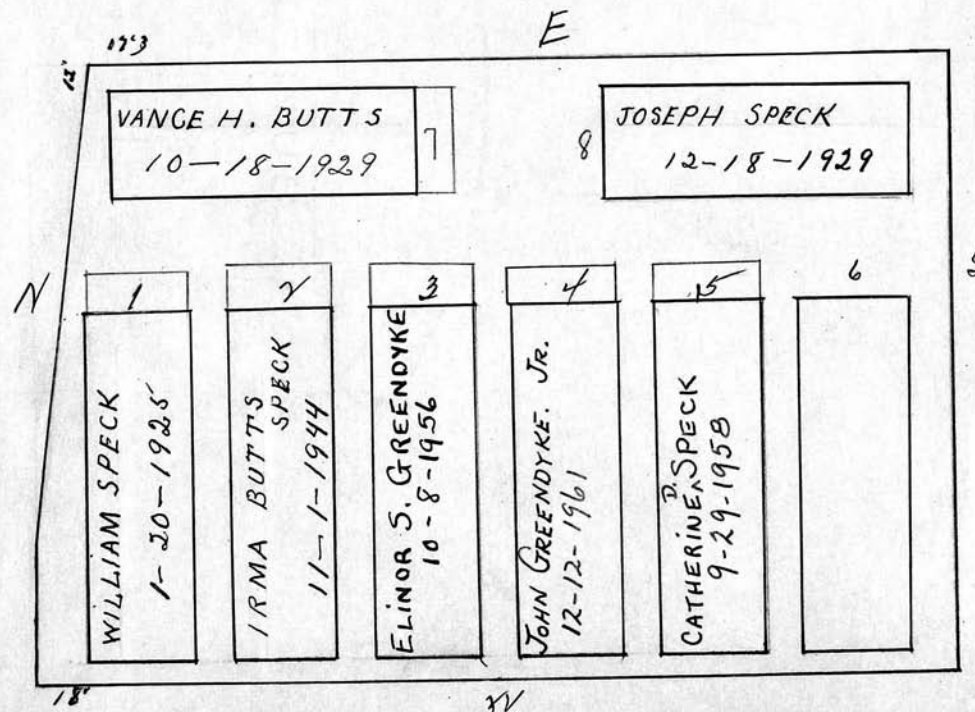 E
VANCE H. BUTTS
10-18-1929
7
8
JOSEPH SPECK
12-18-1929
N
1
2
3
4
5
6
WILLIAM SPECK
1-20-1925
IRMA BUTTS
SPECK
11-1-1944
ELINOR S. GREENDYKE
10-8-1956
JOHN GREENDYKE. JR.
12-12-1961
CATHERINE D. SPECK
9-29-1958
18'
W